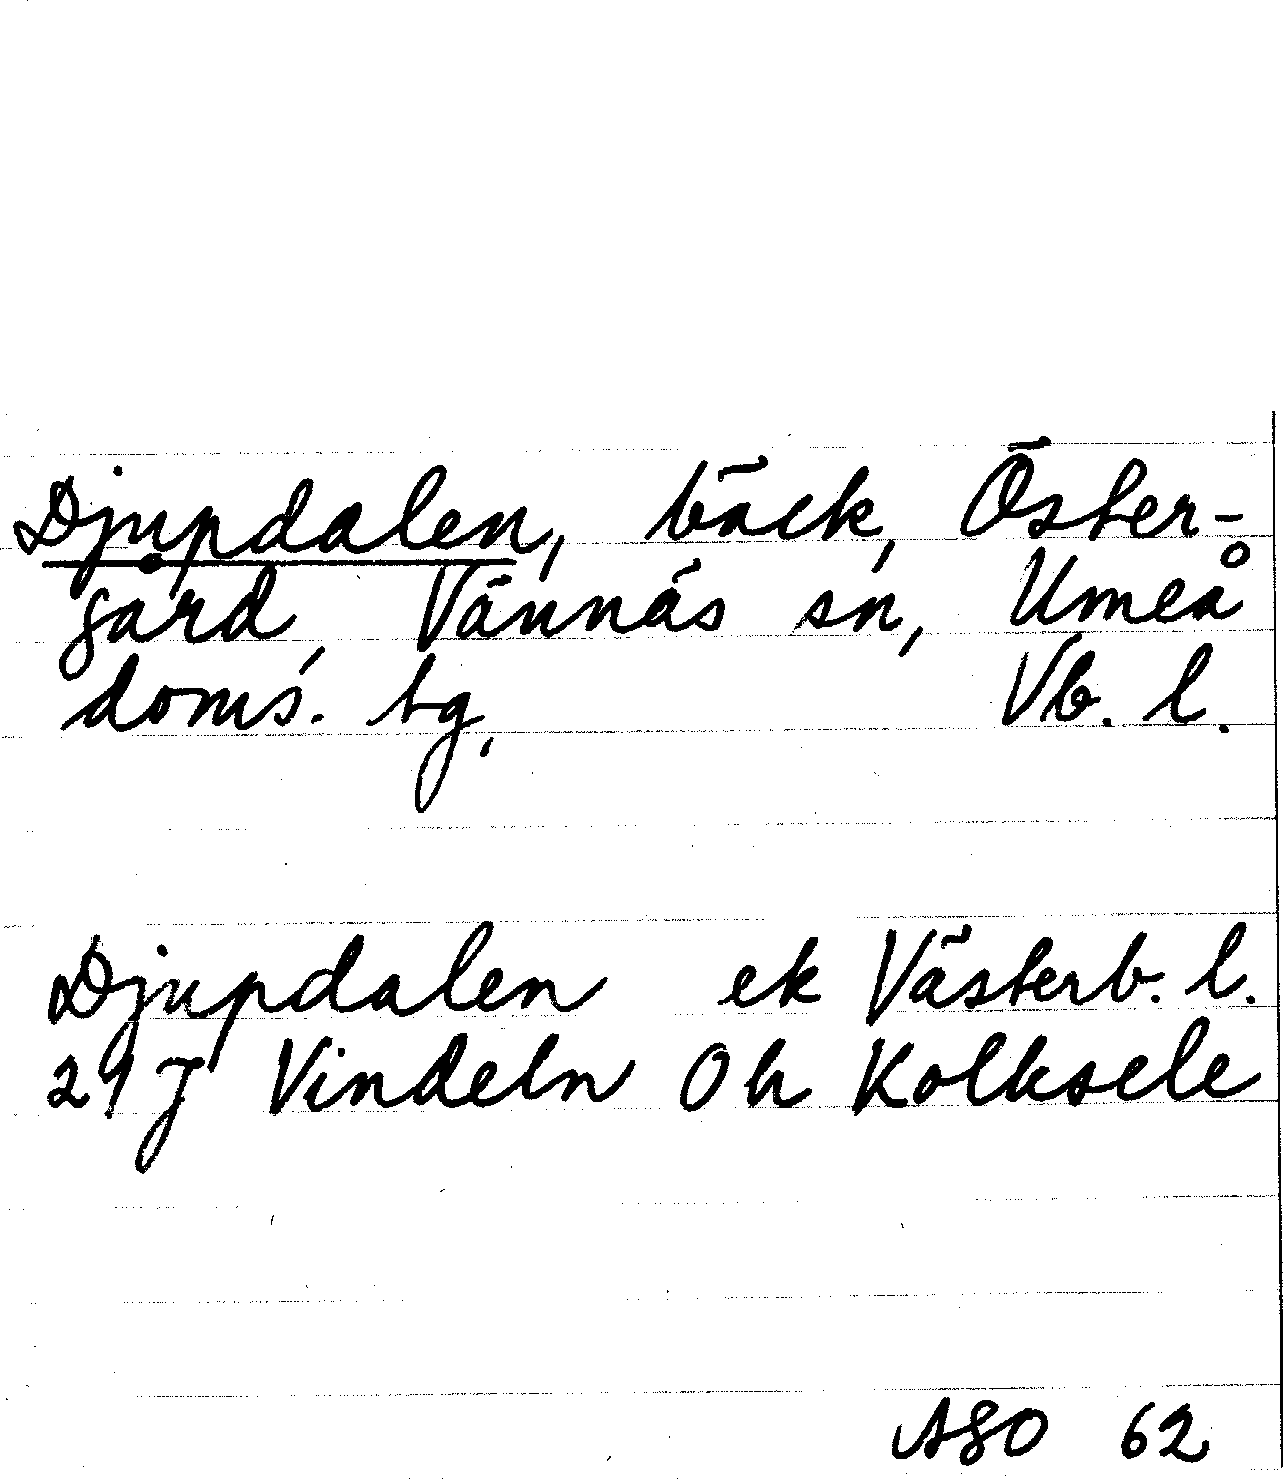 Djupdalen, bäck, Öster-
gård, Vännäs sn, Umeå
doms. tg, Vb. l.
Djupdalen ek Västerb. l.
21J Vindeln Ok Kolksele
ASO 62